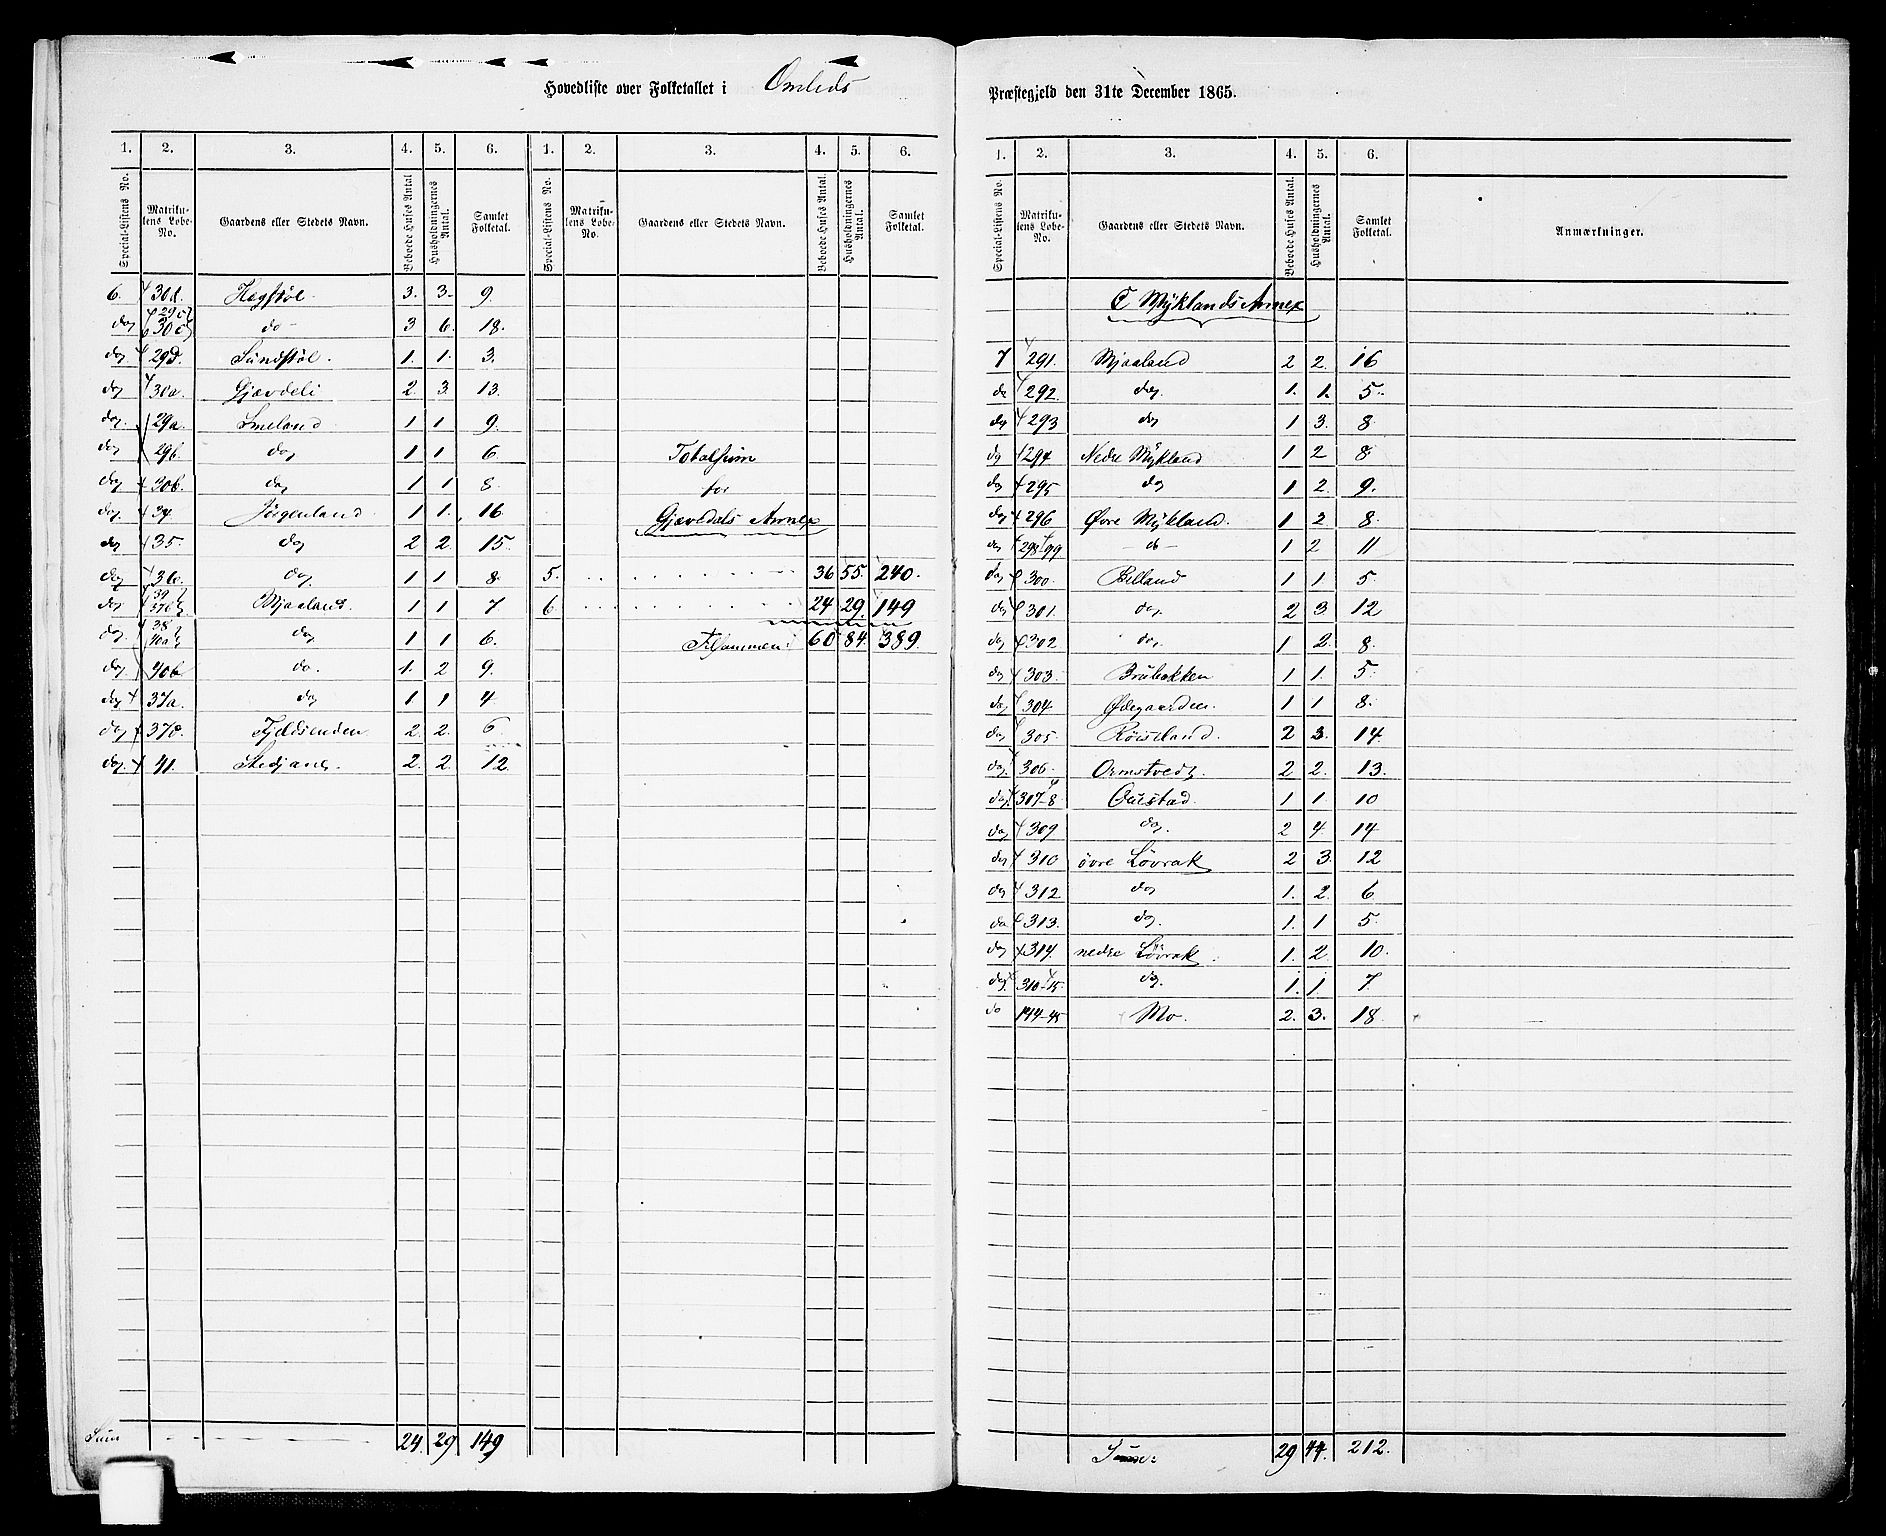 Hovedliste over Folketallet i Omlids Præstegjeld den 31te December 1865.
1. 2. 3. 4. 5. 6. 1. 2. 3. 4. 5. 6.
Special-Listens No. Matrikulens Løbe-No. Gaardens eller Stedets Navn. Beboede Huses Antal Husholdningernes Antal. Samlet Folketal. Special-Listens No. Matrikulens Løbe-No. Gaardens eller Stedets Navn. Beboede Huses Antal. Husholdningernes Antal. Samlet Folketal.
6. 30d. Hegstøl. 3. 3. 9.
do 29c 30c do 3 6. 18.
do 29d. Sundstøl. 1. 1. 3.
do 30a. Gjævdeli 2. 3. 13.
do 29a. Smeland 1 1 9.
do 29b. do 1 1 6.
do 30b. do 1 1 8.
do 34. Jørgenland 1 1. 16
do 35. do 2 2. 15.
do 36. do 1 1 8.
do 39 37b Mjaaland. 1 1 7
do 38 40a do 1 1 6.
do 40b do. 1. 2 9.
do 37a. do 1 1 4
do 37c. Fjeldsenden 2. 2. 6.
do. 41. Stedjane 2. 2. 12.
Sum 24. 29 149
Totalsum
for
Gjævedals Annex
5. 36 55. 240.
6. 24 29. 149
Tilsammen 60 84 389.
1. 2. 3. 4. 5. 6.
Special-Listens No. Matrikulens Løbe-No. Gaardens eller Stedets Navn. Beboede Huses Antal. Husholdningernes Antal. Samlet Folketal. Anmærkninger.
C Myklands Annex
7 291. Mjaaland 2 2. 16
do 292. do. 1. 1. 5.
do 293 do 1 3. 8
do 294 Nedre Mykland 1 2 8
do 295 do 1 2. 9.
do 296 Øvre Mykland. 1 2 8.
do 298-99 do 1 2 11
do 300. Belland 1 1 5.
do 301. do. 2 3. 12
do 302 do. 1 2. 8.
do 303. Brubakken 1 1. 5
do 304. Ødegaarden. 1 1 8.
do 305. Røiseland. 2 3. 14.
do 306. Ormstvedt. 2 2. 13.
do 307-8 Gaustad. 1 1. 10
do 309 do. 2 4. 14
do 310 øvre Løvrak 2 3. 12
do 312 do 1. 2. 6
do 313. do. 1. 1 5.
do 314. nedre Løvrak. 1. 2. 10.
do 310-15. do. 1. 1 7.
do 144-45 Mo. 2. 3. 18.
Summe: 29 44. 212.